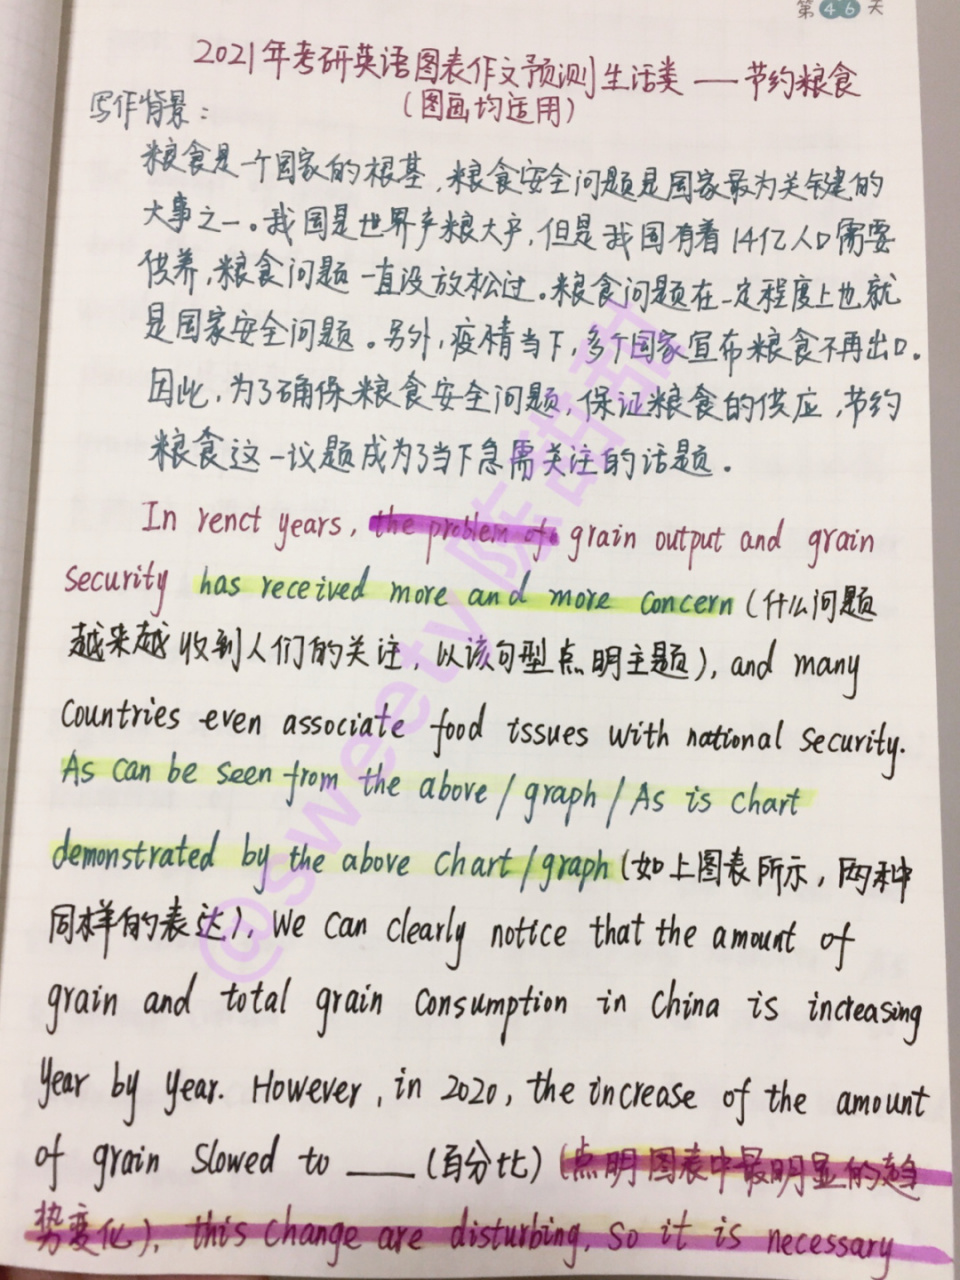 第46天
2021年考研英语图表作文预测生活类——节约粮食
(图画均适用)
写作背景:
粮食是一个国家的根基,粮食安全问题是国家最为关键的
大事之一。我国是世界产粮大户,但是我国有着14亿人口需要
供养,粮食问题一直没放松过。粮食问题在一定程度上也就
是国家安全问题。另外,疫情当下,多个国家宣布粮食不再出口。
因此,为了确保粮食安全问题,保证粮食的供应,节约
粮食这一议题成为了当下急需关注的话题。
In renct years, the problem of grain output and grain
security has received more and more concern (什么问题
越来越收到人们的关注,以该句型点明主题), and many
countries even associate food issues with national security.
As can be seen from the above/graph/As is chart
demonstrated by the above chart/graph(如上图表所示,两种
同样的表达), we can clearly notice that the amount of
grain and total grain consumption in China is increasing
year by year. However, in 2020, the increase of the amount
of grain slowed to ___(百分比)(点明图表中最明显的趋
势变化), this change are disturbing, so it is necessary
@sweety陈甜甜